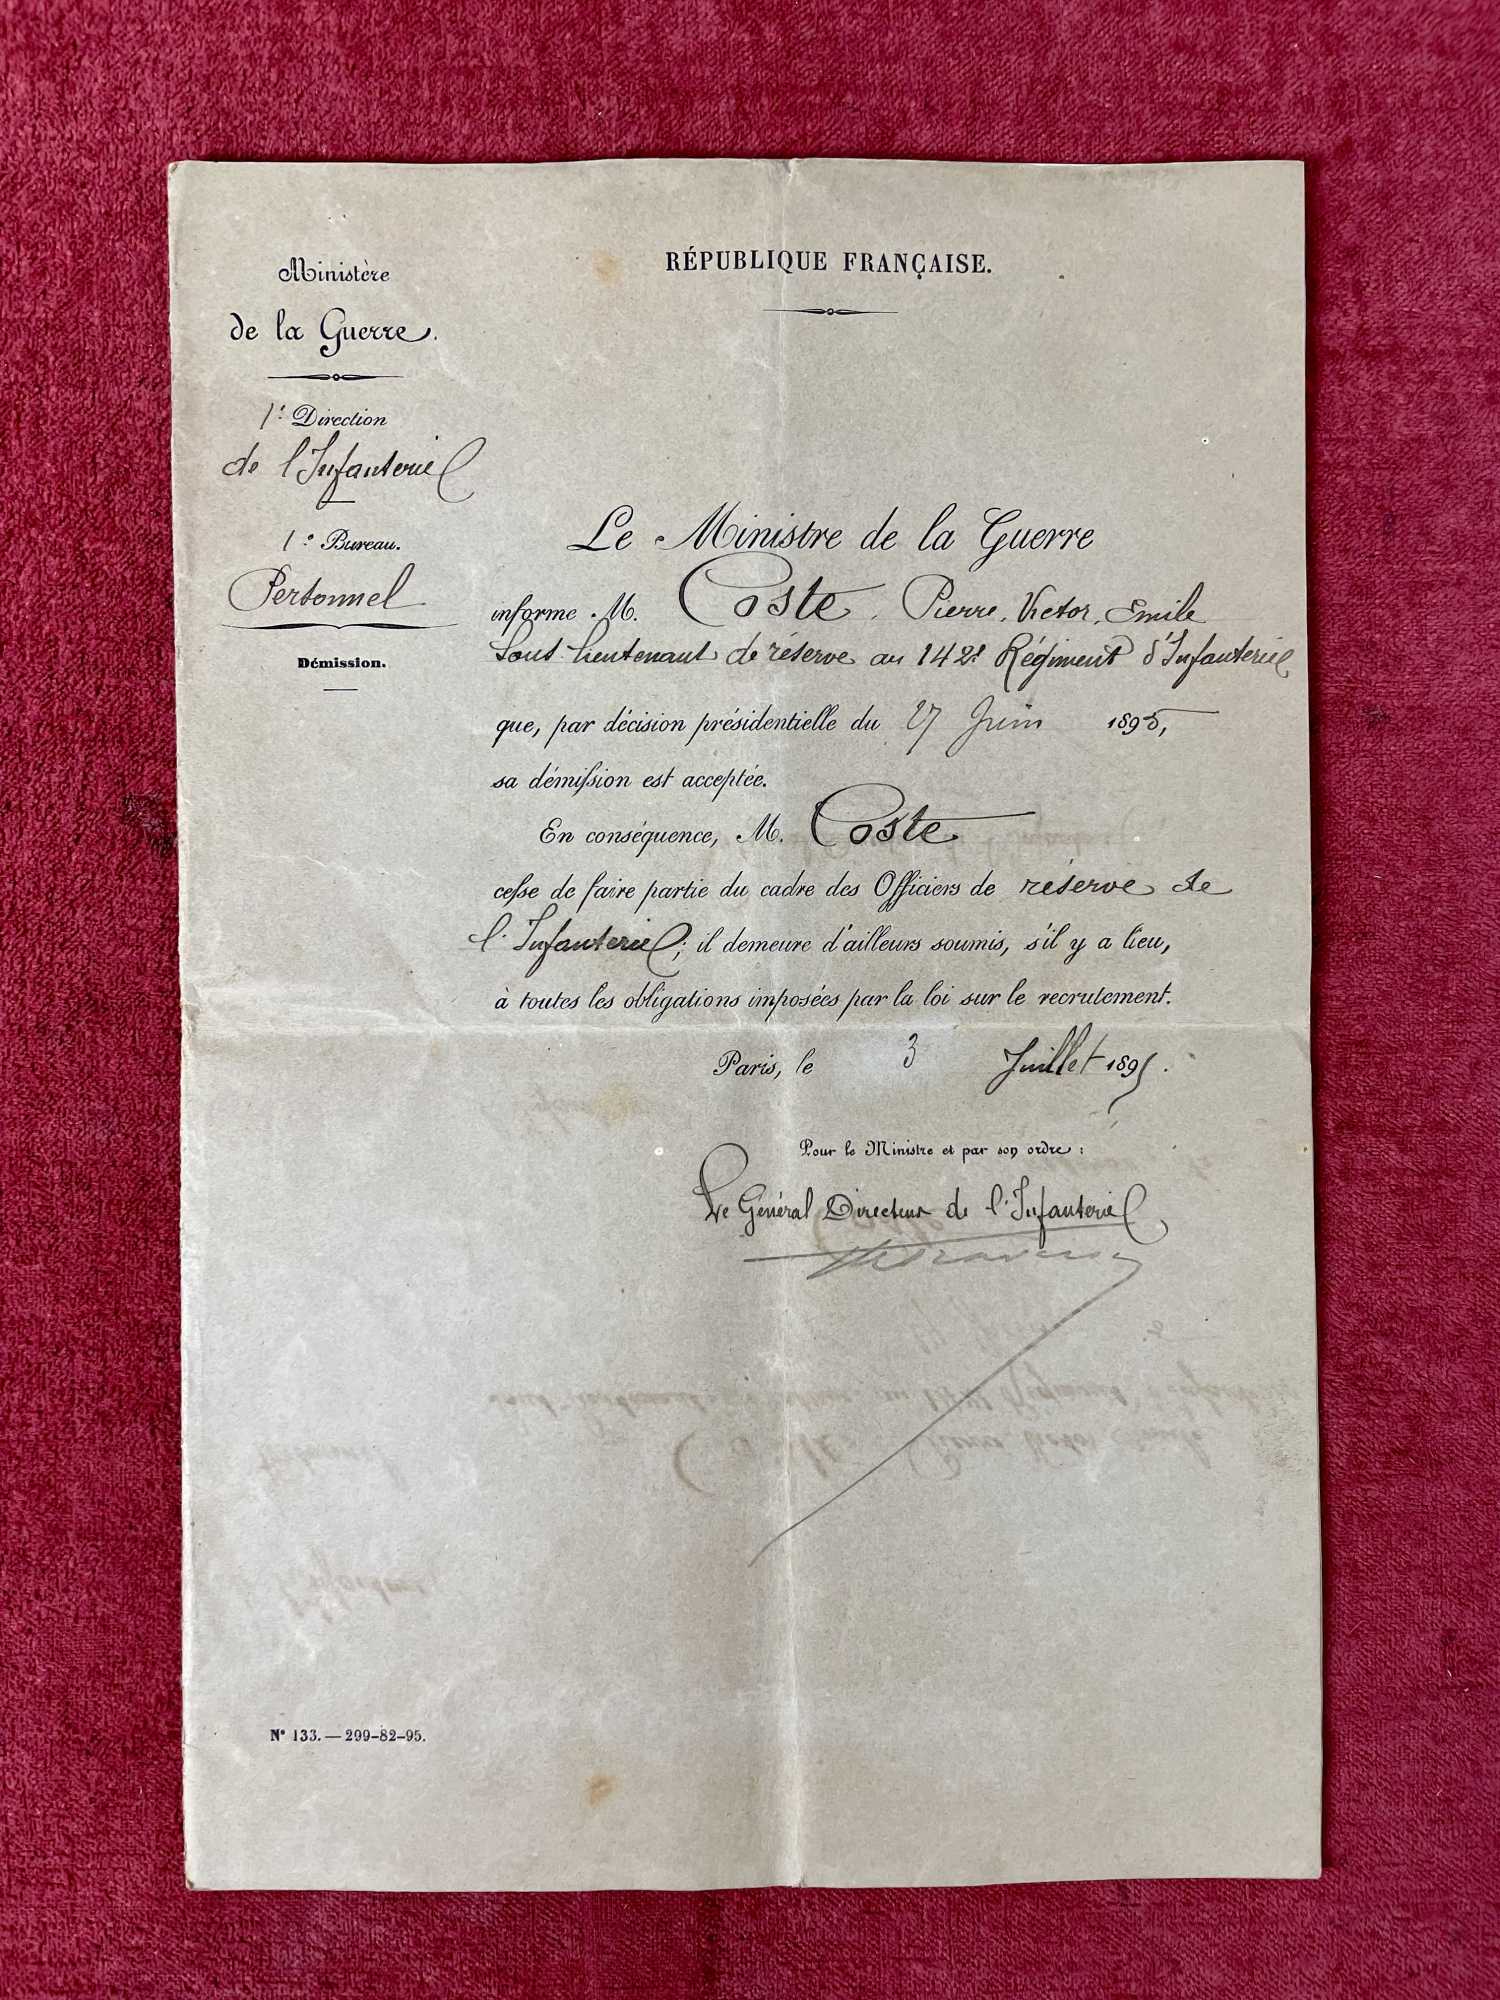 RÉPUBLIQUE FRANÇAISE.
Ministère
de la Guerre.
1e Direction
de l'Infanterie
1er Bureau.
Personnel
Démission.
Le Ministre de la Guerre
informe M. Coste, Pierre, Victor, Emile
Sous-lieutenant de réserve au 142e Régiment d'Infanterie
que, par décision présidentielle du 27 Juin 1895,
sa démission est acceptée.
En conséquence, M. Coste
cesse de faire partie du cadre des Officiers de réserve de
l'Infanterie; il demeure d'ailleurs soumis, s'il y a lieu,
à toutes les obligations imposées par la loi sur le recrutement.
Paris, le 3 Juillet 1895.
Pour le Ministre et par son ordre:
Le Général Directeur de l'Infanterie
N° 133. — 299-82-95.